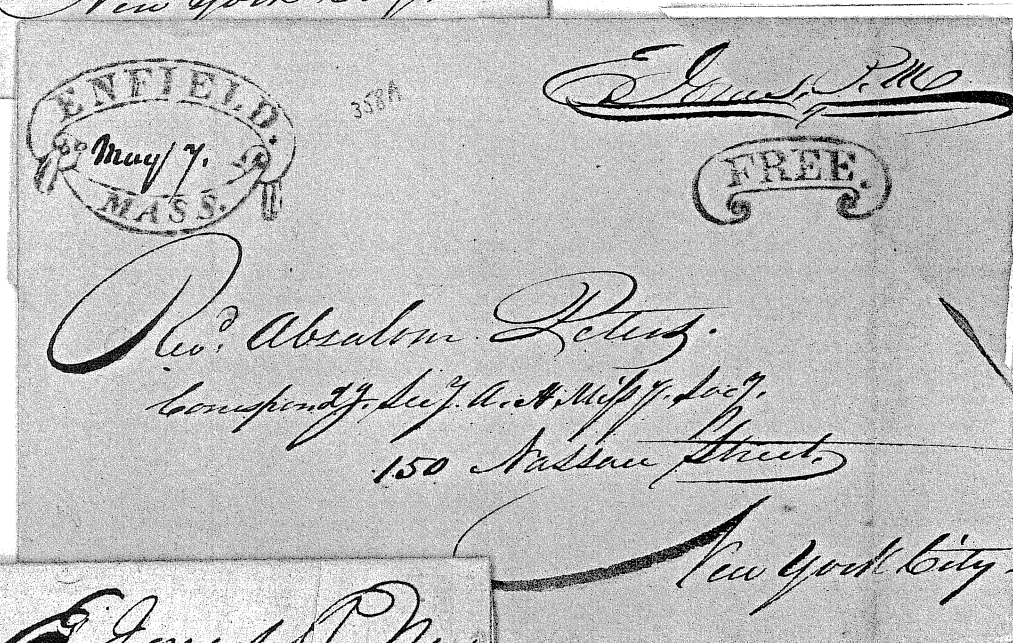 New York City.
ENFIELD.
May 7.
MASS.
358A
E. Jones, P.M
FREE.
Revd. Absalom Peters.
Correspondg. Secy. A. H. Missy. Socy.
150 Nassau Street.
New York City.
E. Jones P M